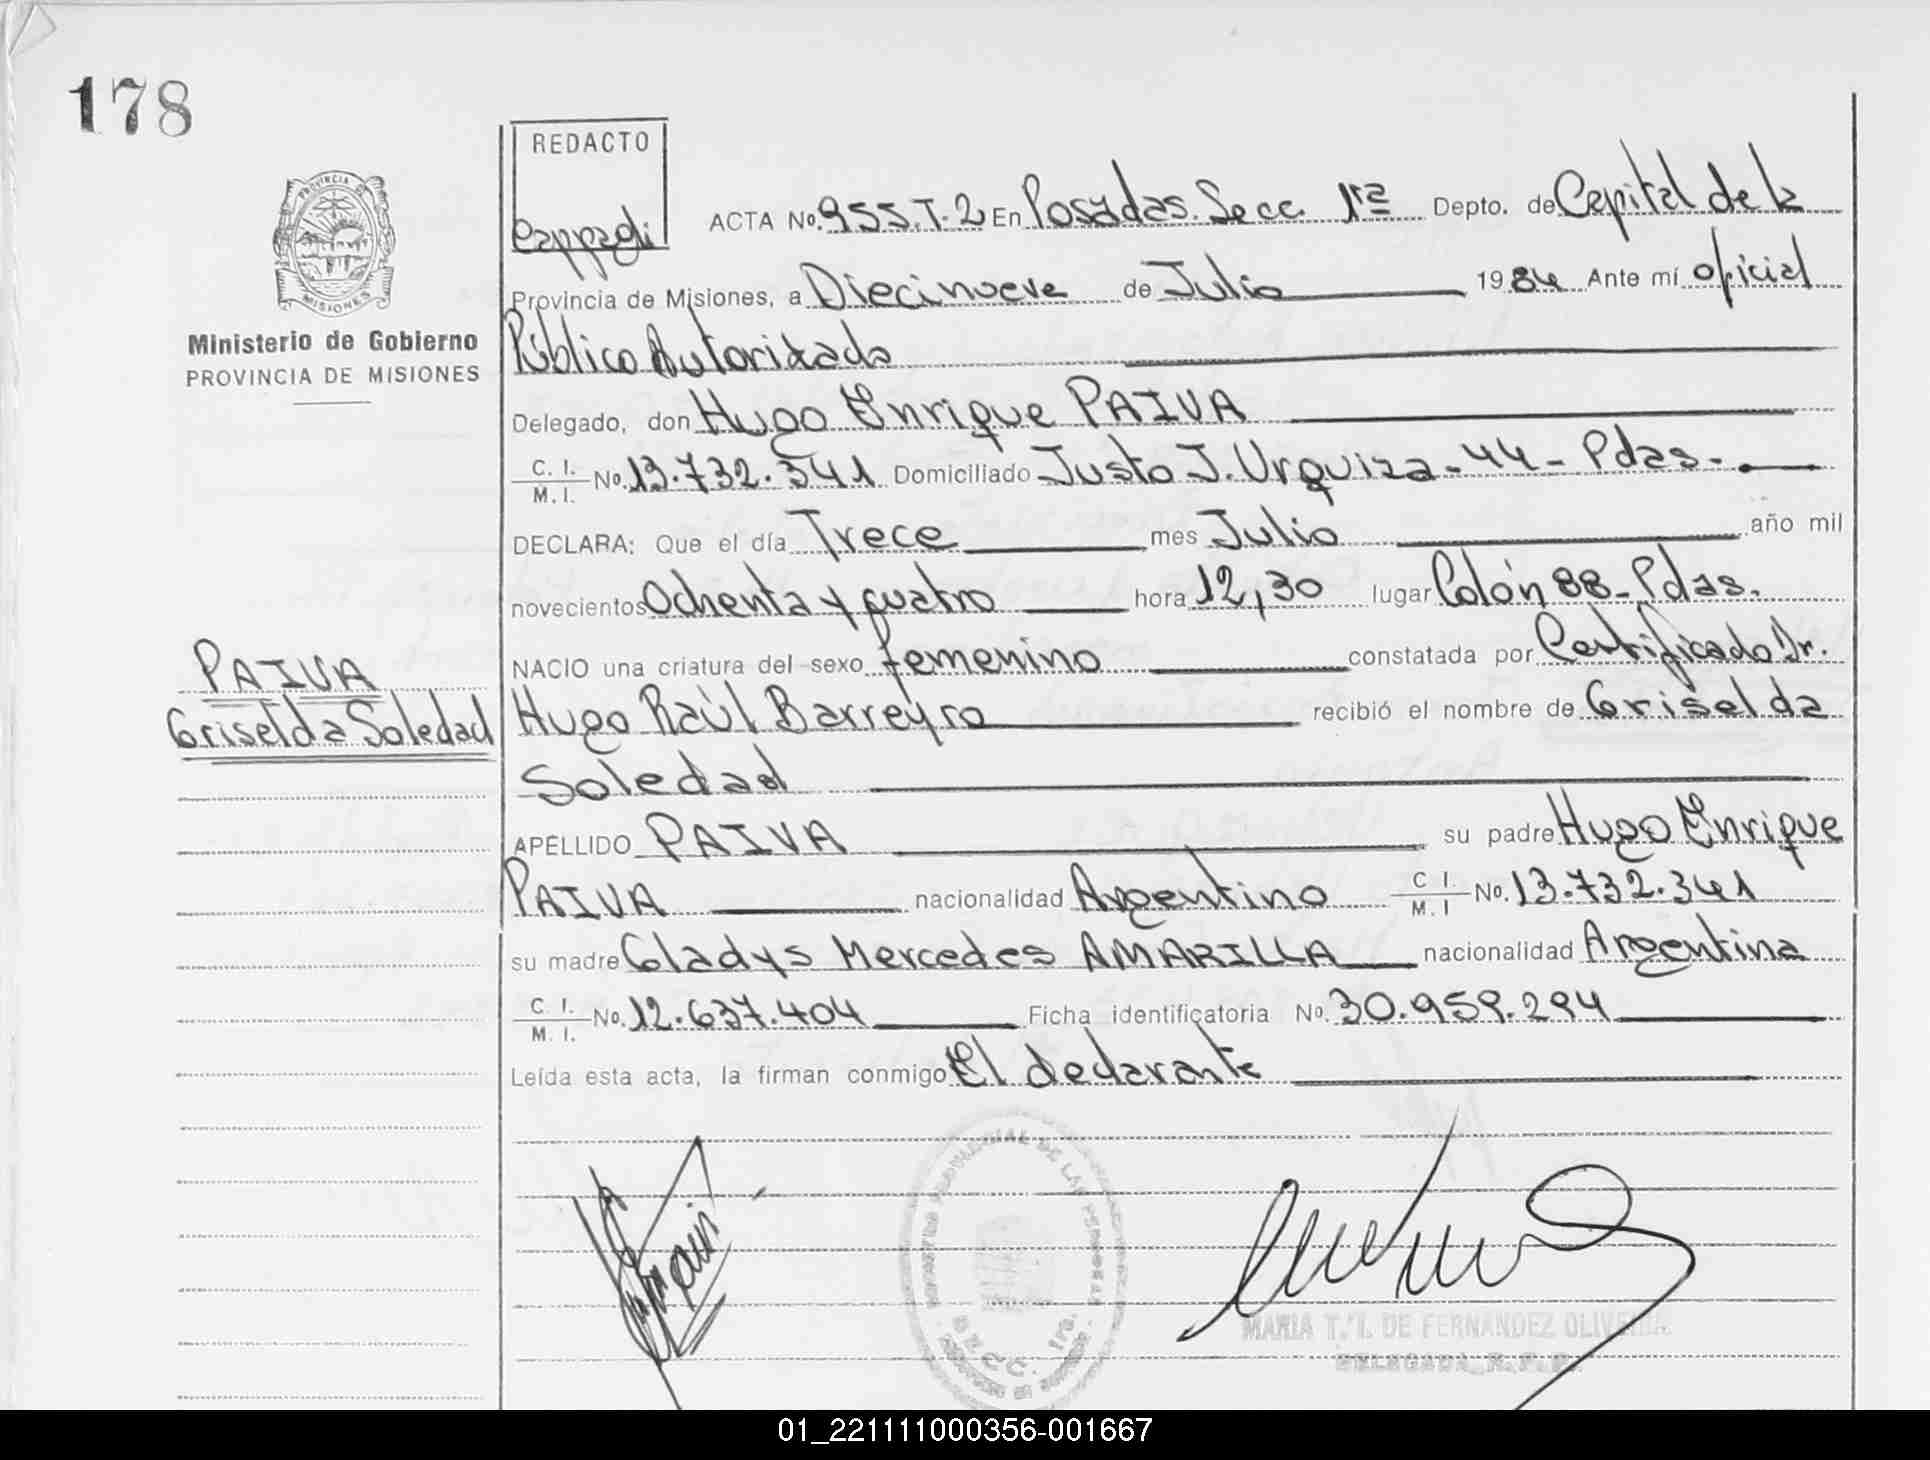 178
REDACTO
PROVINCIA DE
MISIONES
Ministerio de Gobierno
PROVINCIA DE MISIONES
ACTA No. 955.T.2 En Posadas. Secc. 1ra Depto. de Capital de la
Provincia de Misiones, a Diecinueve de Julio 1984 Ante mí oficial
Público Autorizado
Delegado, don Hugo Enrique PAIVA
C. I. / M. I. No. 13.732.341 Domiciliado Justo J. Urquiza-44-Pdas.
DECLARA: Que el día Trece mes Julio año mil
novecientos Ochenta y cuatro hora 12,30 lugar Colón 88-Pdas.
NACIO una criatura del sexo femenino constatada por Certificado Dr.
PAIVA
Griselda Soledad
Hugo Raúl Barreyro recibió el nombre de Griselda
Soledad
APELLIDO PAIVA su padre Hugo Enrique
PAIVA nacionalidad Argentino C I. / M. I No. 13.732.341
su madre Gladys Mercedes AMARILLA nacionalidad Argentina
C. I. / M. I. No. 12.637.404 Ficha identificatoria No. 30.959.294
Leída esta acta, la firman conmigo El declarante
PROVINCIAL DE LAS PERSONAS
MARIA T. I. DE FERNANDEZ OLIVEIRA
DELEGADA R. P. P.
01_221111000356-001667